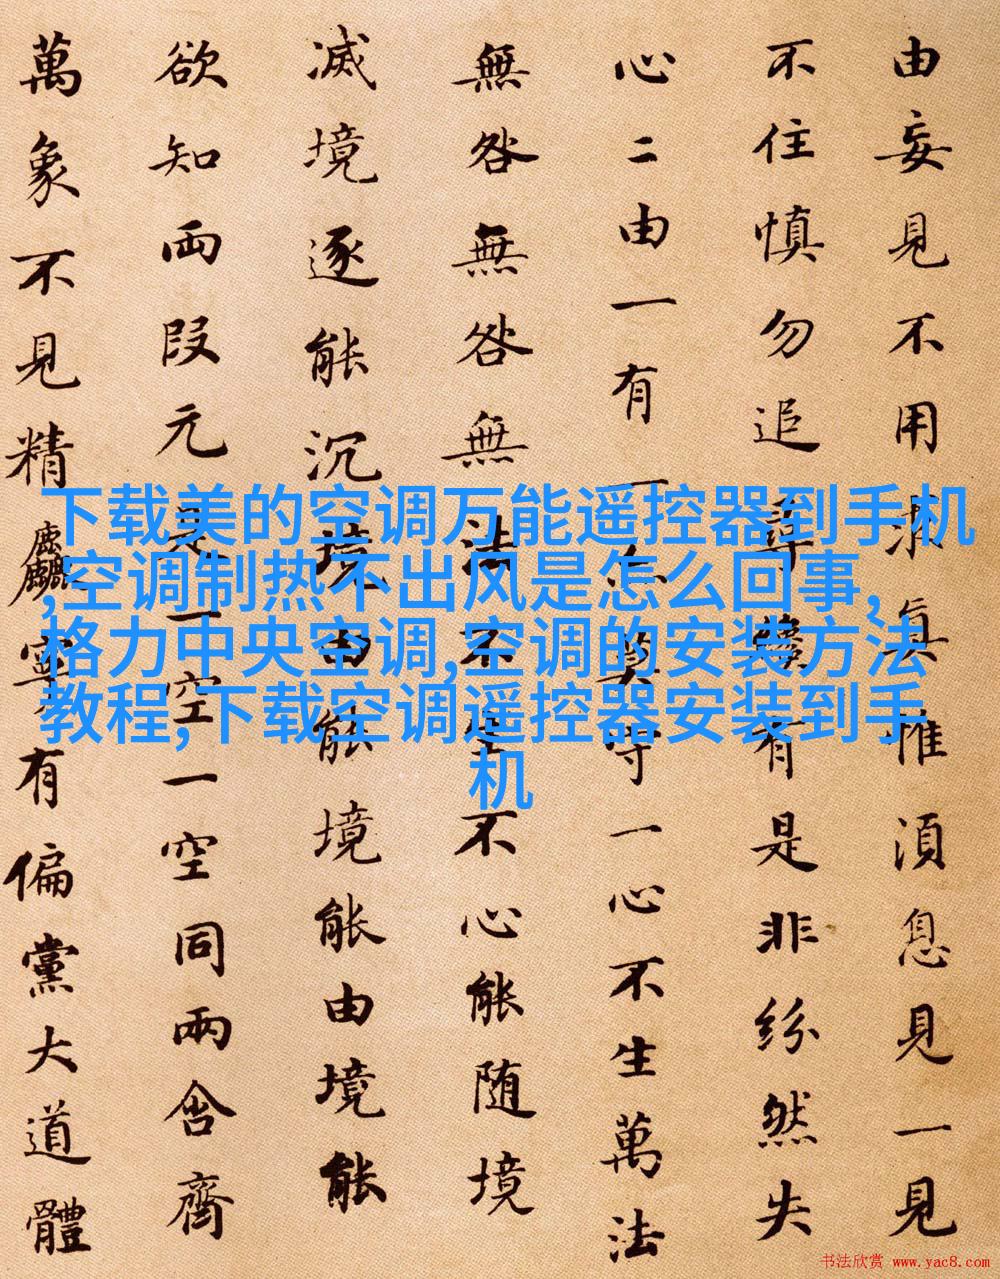 由妄見不用求真惟湏息見一見
不住慎勿追尋纔有是非紛然失
心二由一有一亦莫守一心不生萬法
無咎無咎無法不生不心能随境
滅境逐能沉境由能境能由境能
欲知兩段元是一空一空同兩含齊
萬象不見精麤寧有偏黨大道體
下载美的空调万能遥控器到手机
,空调制热不出风是怎么回事,
格力中央空调,空调的安装方法
教程,下载空调遥控器安装到手
机
书法欣赏 www.yac8.com